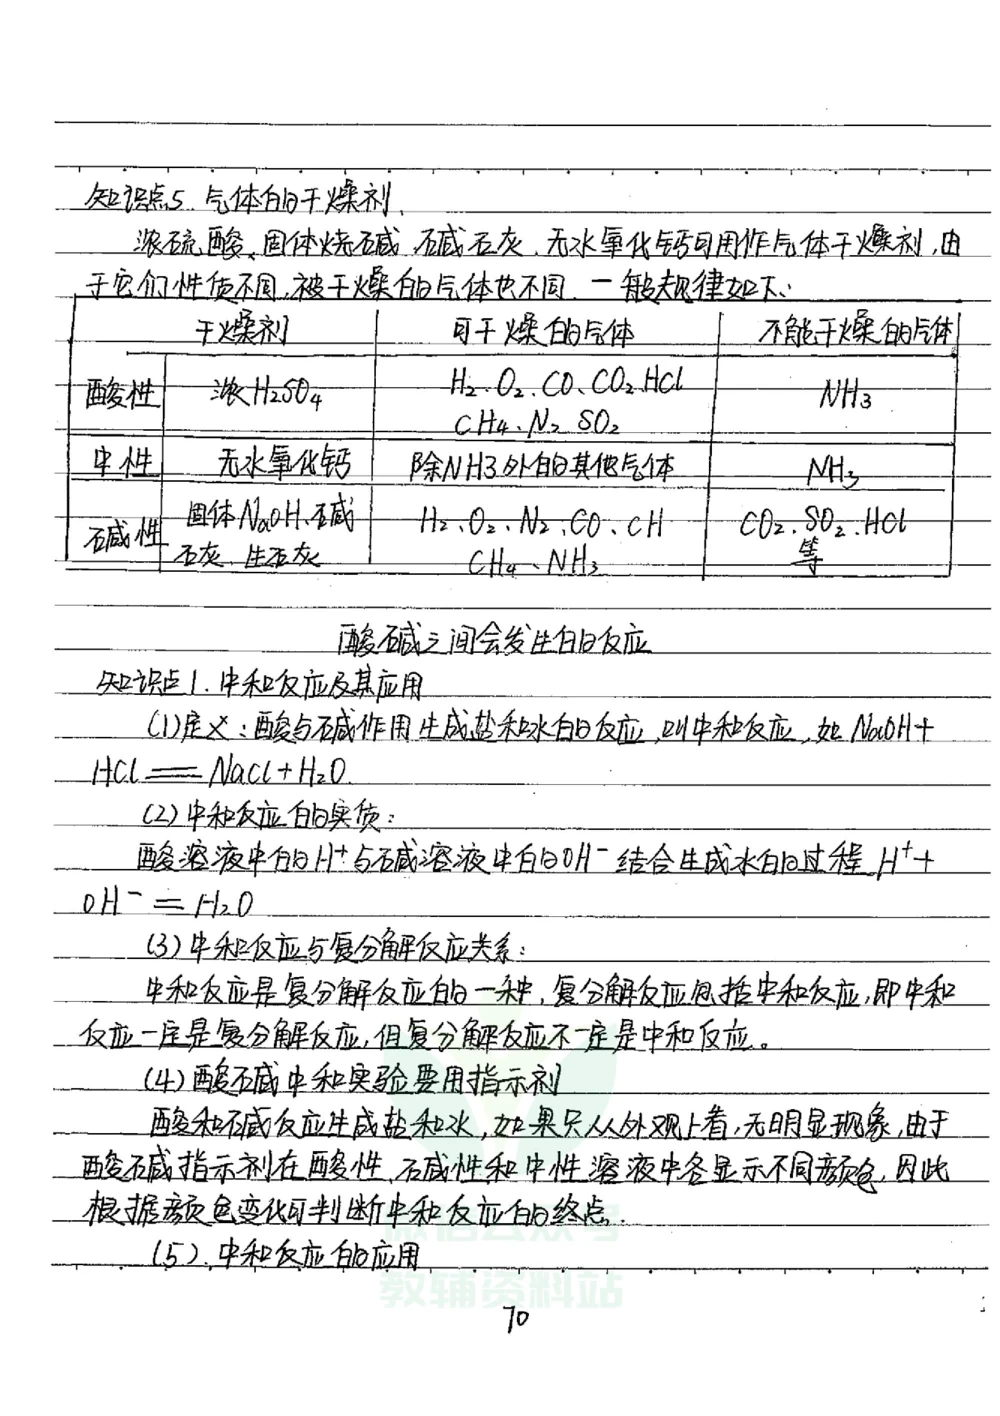 知识点5. 气体的干燥剂.
浓硫酸、固体烧碱、碱石灰、无水氧化钙可用作气体干燥剂,由
于它们性质不同,被干燥的气体也不同.一般规律如下:
干燥剂 可干燥的气体 不能干燥的气体
酸性 浓H2SO4 H2、O2、CO、CO2、HCl NH3
CH4、N2 SO2
中性 无水氧化钙 除NH3外的其他气体 NH3
碱性 固体NaOH、碱 H2、O2、N2、CO、CH CO2、SO2、HCl
石灰、生石灰 CH4、NH3 等
酸碱之间会发生的反应
知识点1.中和反应及其应用
(1)定义:酸与碱作用生成盐和水的反应,叫中和反应,如NaOH+
HCl══NaCl+H2O.
(2)中和反应的实质:
酸溶液中的H+与碱溶液中的OH-结合生成水的过程 H++
OH-═H2O
(3)中和反应与复分解反应关系:
中和反应是复分解反应的一种,复分解反应包括中和反应,即中和
反应一定是复分解反应,但复分解反应不一定是中和反应。
(4)酸碱中和实验要用指示剂
酸和碱反应生成盐和水,如果只从外观上看,无明显现象,由于
酸碱指示剂在酸性、碱性和中性溶液中各显示不同颜色,因此
根据颜色变化可判断中和反应的终点.
(5).中和反应的应用
微信公众号
教辅资料站
70